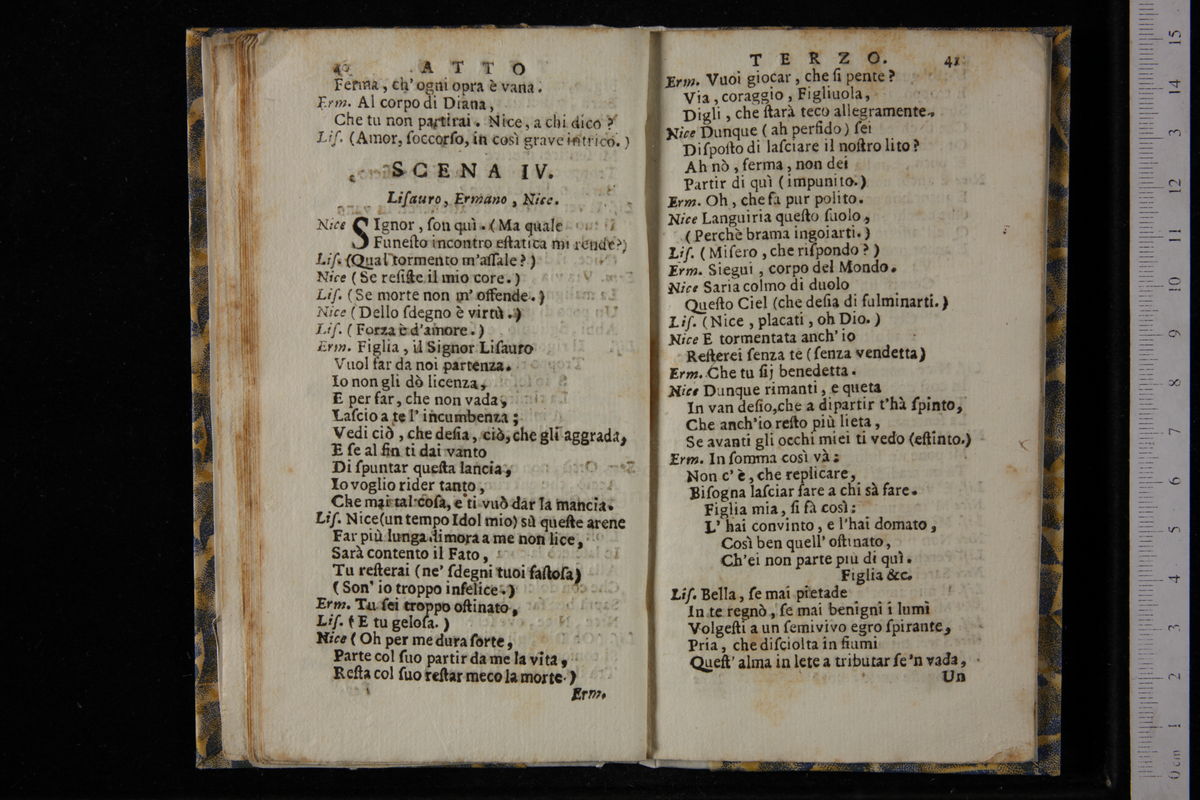 40 ATTO
Ferma, ch' ogni opra è vana.
Erm. Al corpo di Diana,
Che tu non partirai. Nice, a chi dico?
Liſ. (Amor, ſoccorſo, in così grave intrico.)
SCENA IV.
Liſauro, Ermano, Nice.
Nice SIgnor, ſon quì. (Ma quale
Funeſto incontro eſtatica mi rende?)
Liſ. (Qual tormento m'aſſale?)
Nice (Se reſiſte il mio core.)
Liſ. (Se morte non m' offende.)
Nice (Dello ſdegno è virtù.)
Liſ. (Forza è d'amore.)
Erm. Figlia, il Signor Liſauro
Vuol far da noi partenza.
Io non gli dò licenza,
E per far, che non vada,
Laſcio a te l' incumbenza;
Vedi ciò, che deſia, ciò, che gli aggrada,
E ſe al fin ti dai vanto
Di ſpuntar queſta lancia,
Io voglio rider tanto,
Che mai tal coſa, e ti vuò dar la mancia.
Liſ. Nice (un tempo Idol mio) sù queſte arene
Far più lunga dimora a me non lice,
Sarà contento il Fato,
Tu reſterai (ne' ſdegni tuoi faſtoſa)
(Son' io troppo infelice.)
Erm. Tu ſei troppo oſtinato,
Liſ. (E tu geloſa.)
Nice (Oh per me dura ſorte,
Parte col ſuo partir da me la vita,
Reſta col ſuo reſtar meco la morte.)
Erm.
TERZO. 41
Erm. Vuoi giocar, che ſi pente?
Via, coraggio, Figliuola,
Digli, che ſtarà teco allegramente.
Nice Dunque (ah perfido) ſei
Diſpoſto di laſciare il noſtro lito?
Ah nò, ferma, non dei
Partir di quì (impunito.)
Erm. Oh, che fa pur polito.
Nice Languiria queſto ſuolo,
(Perchè brama ingoiarti.)
Liſ. (Miſero, che riſpondo?)
Erm. Siegui, corpo del Mondo.
Nice Saria colmo di duolo
Queſto Ciel (che deſia di fulminarti.)
Liſ. (Nice, placati, oh Dio.)
Nice E tormentata anch' io
Reſterei ſenza te (ſenza vendetta)
Erm. Che tu ſij benedetta.
Nice Dunque rimanti, e queta
In van deſio, che a dipartir t'hà ſpinto,
Che anch'io reſto più lieta,
Se avanti gli occhi miei ti vedo (eſtinto.)
Erm. In ſomma così và:
Non c' è, che replicare,
Biſogna laſciar fare a chi sà fare.
Figlia mia, ſi fà così:
L' hai convinto, e l'hai domato,
Così ben quell' oſtinato,
Ch'ei non parte più di quì.
Figlia &c.
Liſ. Bella, ſe mai pietade
In te regnò, ſe mai benigni i lumi
Volgeſti a un ſemivivo egro ſpirante,
Pria, che diſciolta in fiumi
Queſt' alma in lete a tributar ſe'n vada,
Un
0 cm 1 2 3 4 5 6 7 8 9 10 11 12 13 14 15